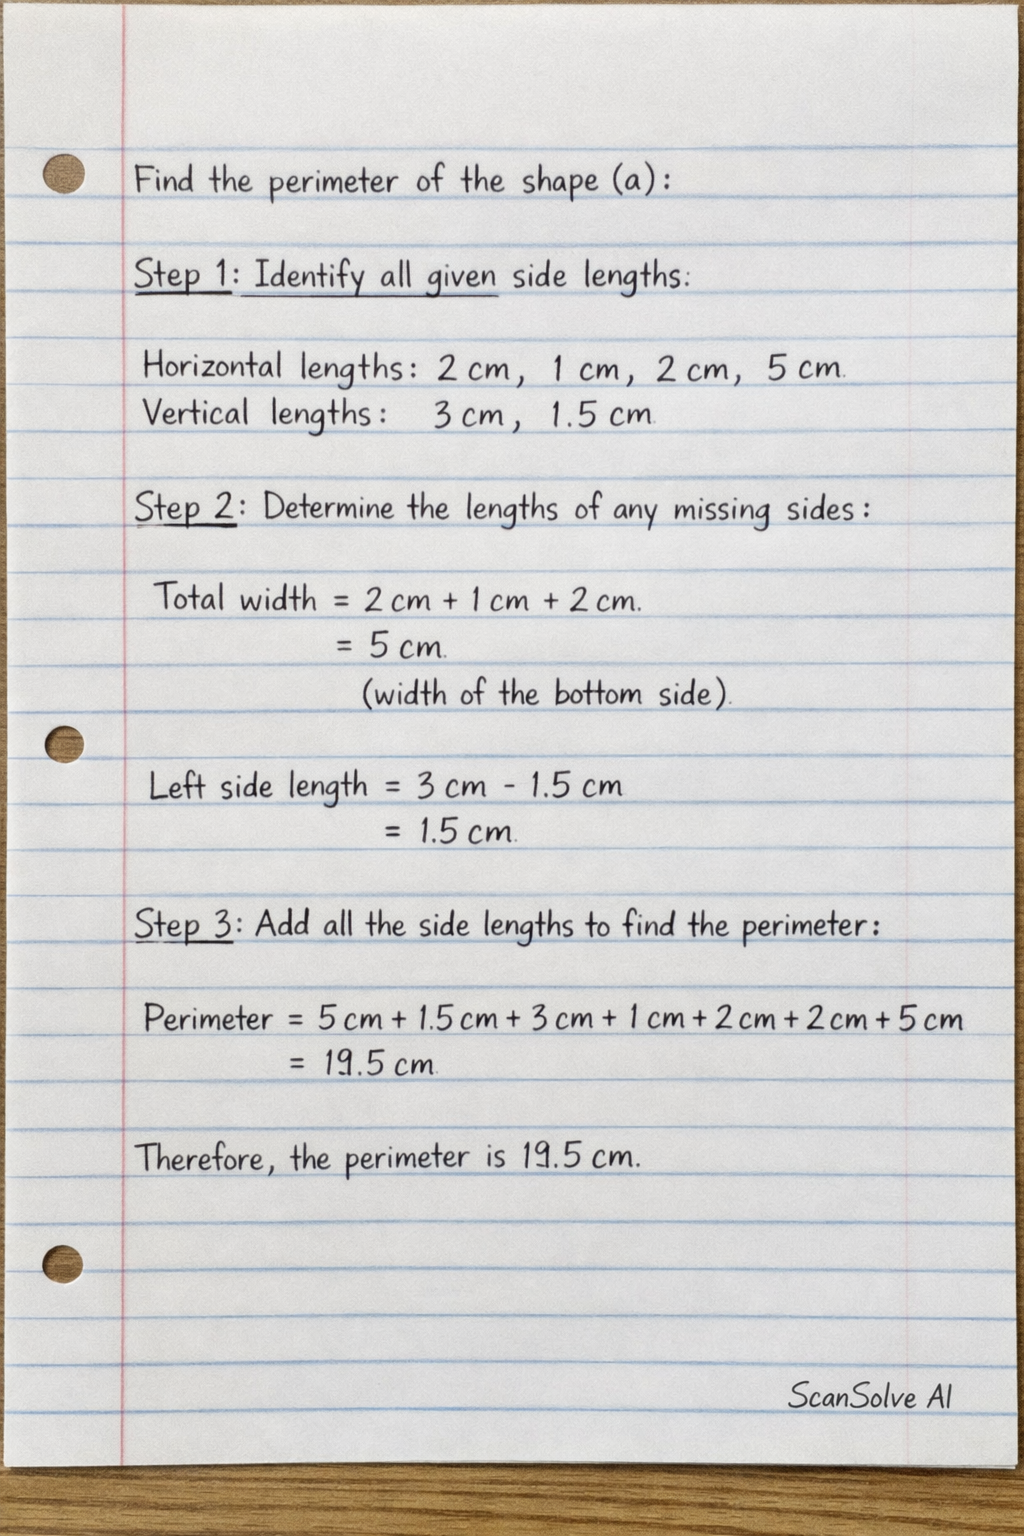 Find the perimeter of the shape (a):
Step 1: Identify all given side lengths:
Horizontal lengths: 2 cm, 1 cm, 2 cm, 5 cm.
Vertical lengths: 3 cm, 1.5 cm.
Step 2: Determine the lengths of any missing sides:
Total width = 2 cm + 1 cm + 2 cm.
= 5 cm.
(width of the bottom side).
Left side length = 3 cm - 1.5 cm
= 1.5 cm.
Step 3: Add all the side lengths to find the perimeter:
Perimeter = 5 cm + 1.5 cm + 3 cm + 1 cm + 2 cm + 2 cm + 5 cm
= 19.5 cm.
Therefore, the perimeter is 19.5 cm.
ScanSolve AI